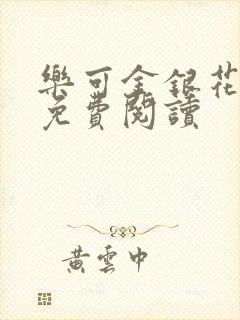 樂可金銀花
免費閱讀
黃雲中